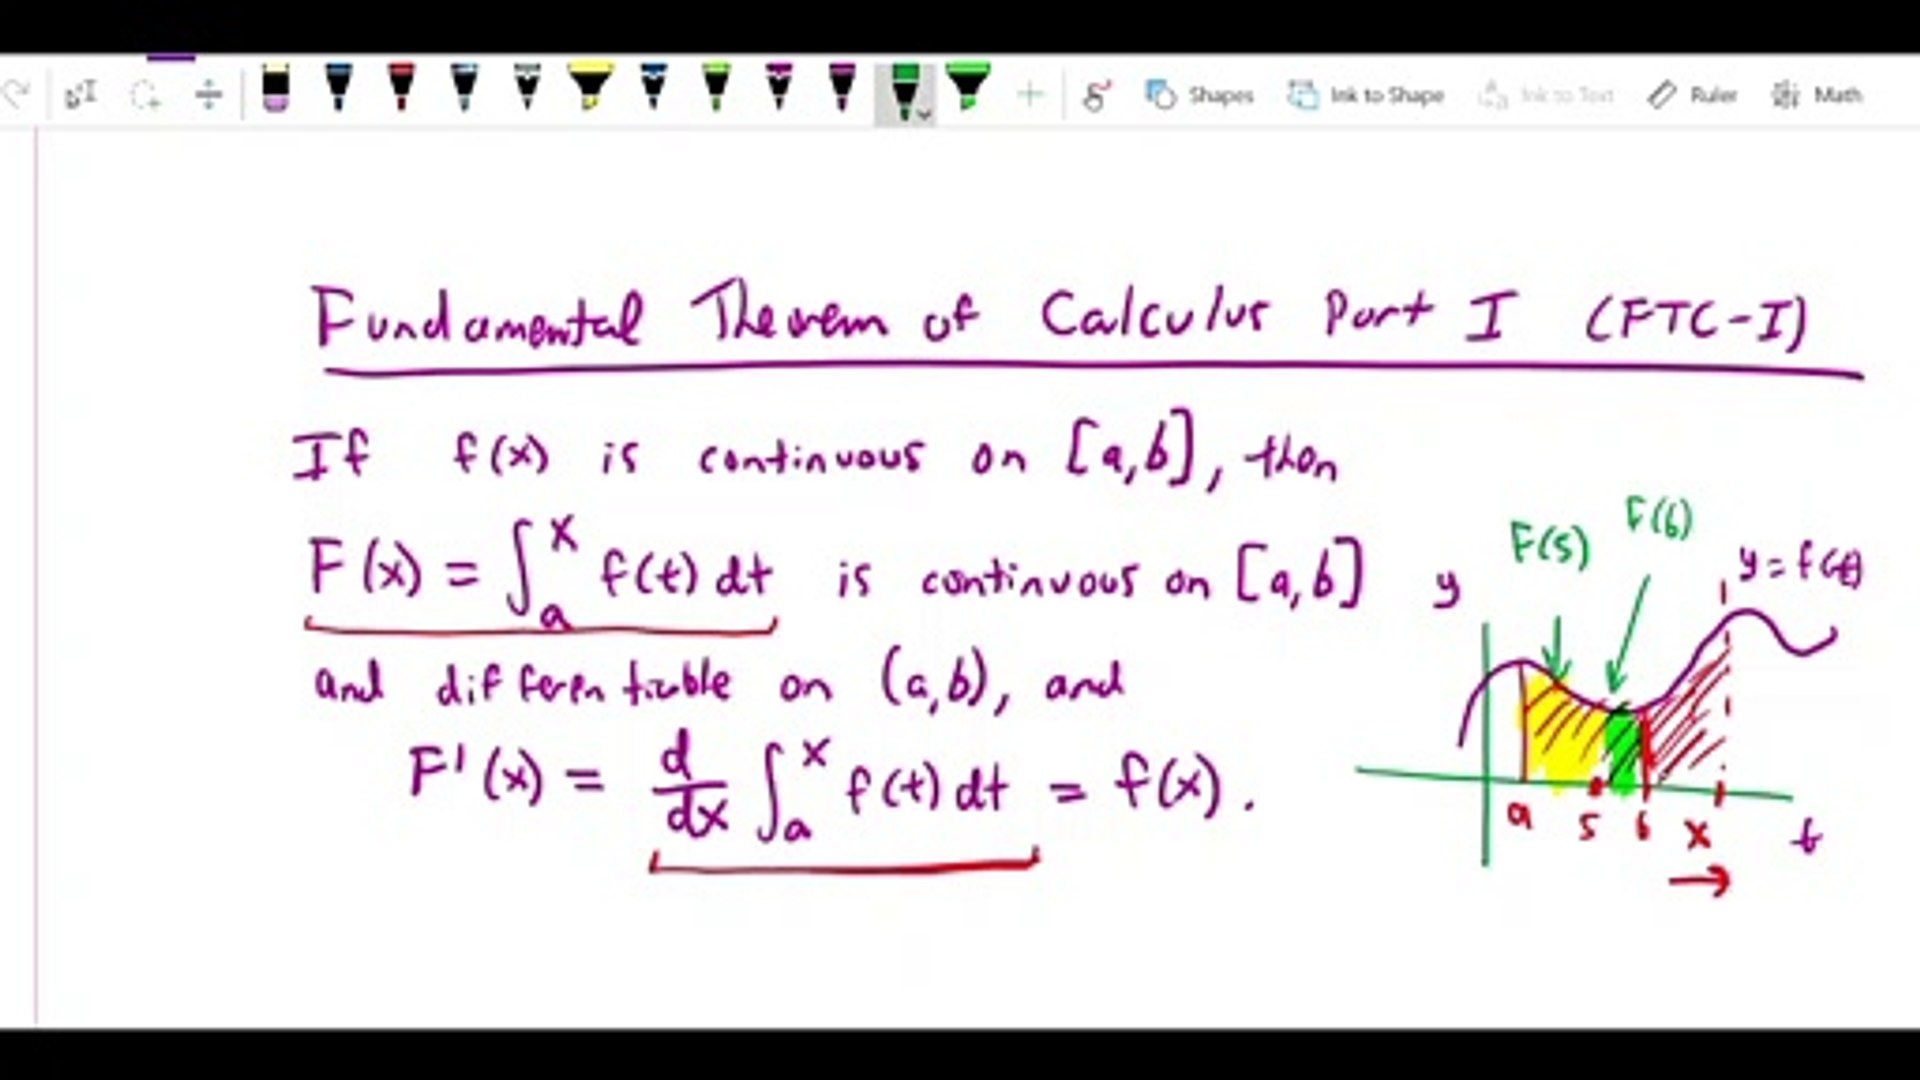 Shapes Ink to Shape Ink to Text Ruler Math
Fundamental Theorem of Calculus Part I (FTC-I)
If f(x) is continuous on [a,b], then
F(x) = ∫ₐˣ f(t) dt is continuous on [a,b]
and differentiable on (a,b), and
F'(x) = d/dx ∫ₐˣ f(t) dt = f(x).
F(5) F(6)
y y = f(t)
a 5 6 x t